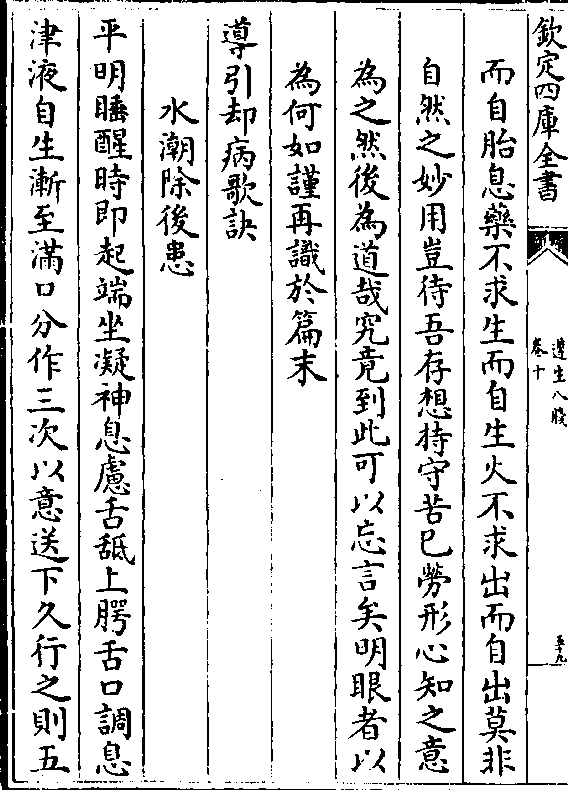 欽定四庫全書
遵生八牋
卷十
五十九
而自胎息藥不求生而自生火不求出而自出莫非
自然之妙用豈待吾存想持守苦已勞形心知之意
為之然後為道哉究竟到此可以忘言矣明眼者以
為何如謹再識於篇末
導引却病歌訣
水潮除後患
平明睡醒時即起端坐凝神息慮舌舐上腭舌口調息
津液自生漸至滿口分作三次以意送下久行之則五